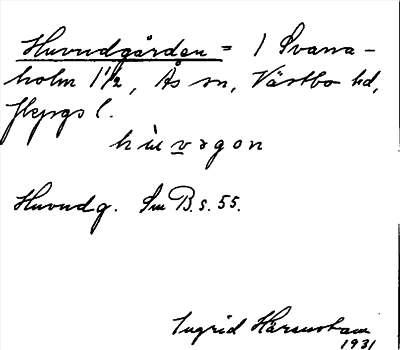 Huvudgården = 1 Svana-
holm 1 1/2, Ås sn, Västbo hd,
Jkpgs l.
hùvagon
Huvudg. Sm B. s. 55.
Ingrid Härenstam
1931